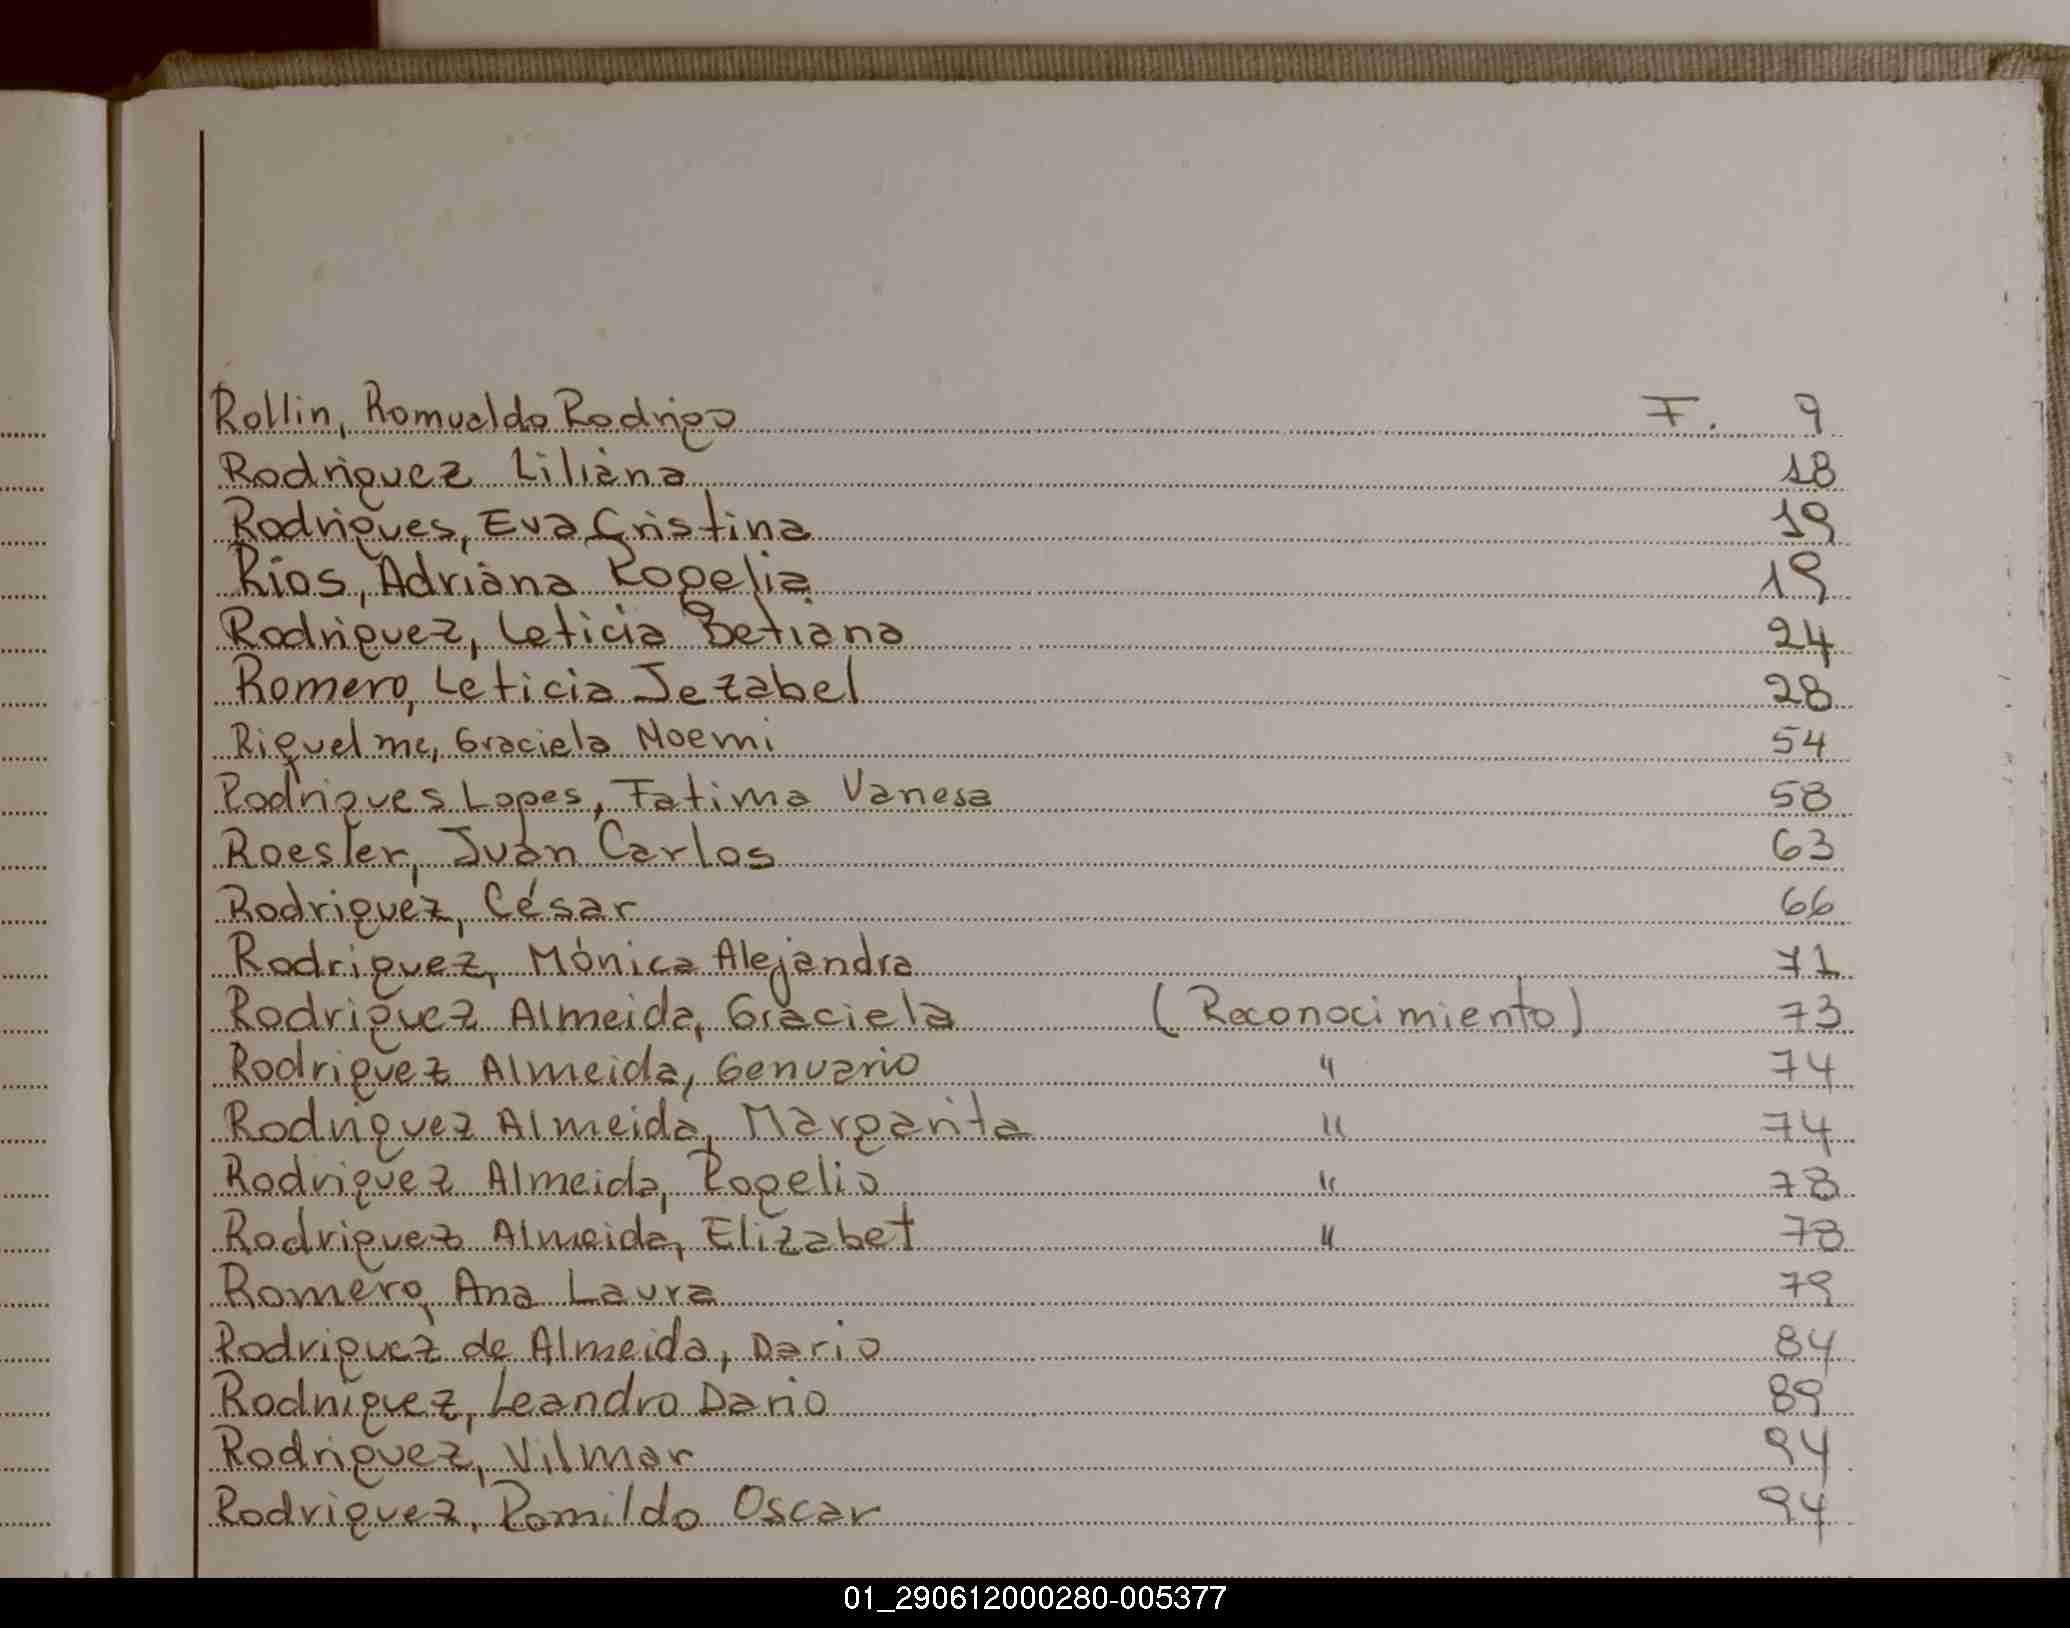 Rollin, Romualdo Rodrigo F. 9
Rodriguez Liliana 18
Rodrigues, Eva Cristina 19
Rios, Adriana Rogelia 19
Rodriguez, Leticia Betiana 24
Romero, Leticia Jezabel 28
Riquelme, Graciela Noemi 54
Rodrigues Lopes, Fatima Vanesa 58
Roesler, Juan Carlos 63
Rodriguez, César 66
Rodriguez, Mónica Alejandra 71
Rodriguez Almeida, Graciela (Reconocimiento) 73
Rodriguez Almeida, Genuario " 74
Rodriguez Almeida, Margarita " 74
Rodriguez Almeida, Rogelio " 78
Rodriguez Almeida, Elizabet " 78
Romero, Ana Laura 79
Rodriguez de Almeida, Dario 84
Rodriguez, Leandro Dario 89
Rodriguez, Vilmar 94
Rodriguez, Romildo Oscar 94
01_290612000280-005377